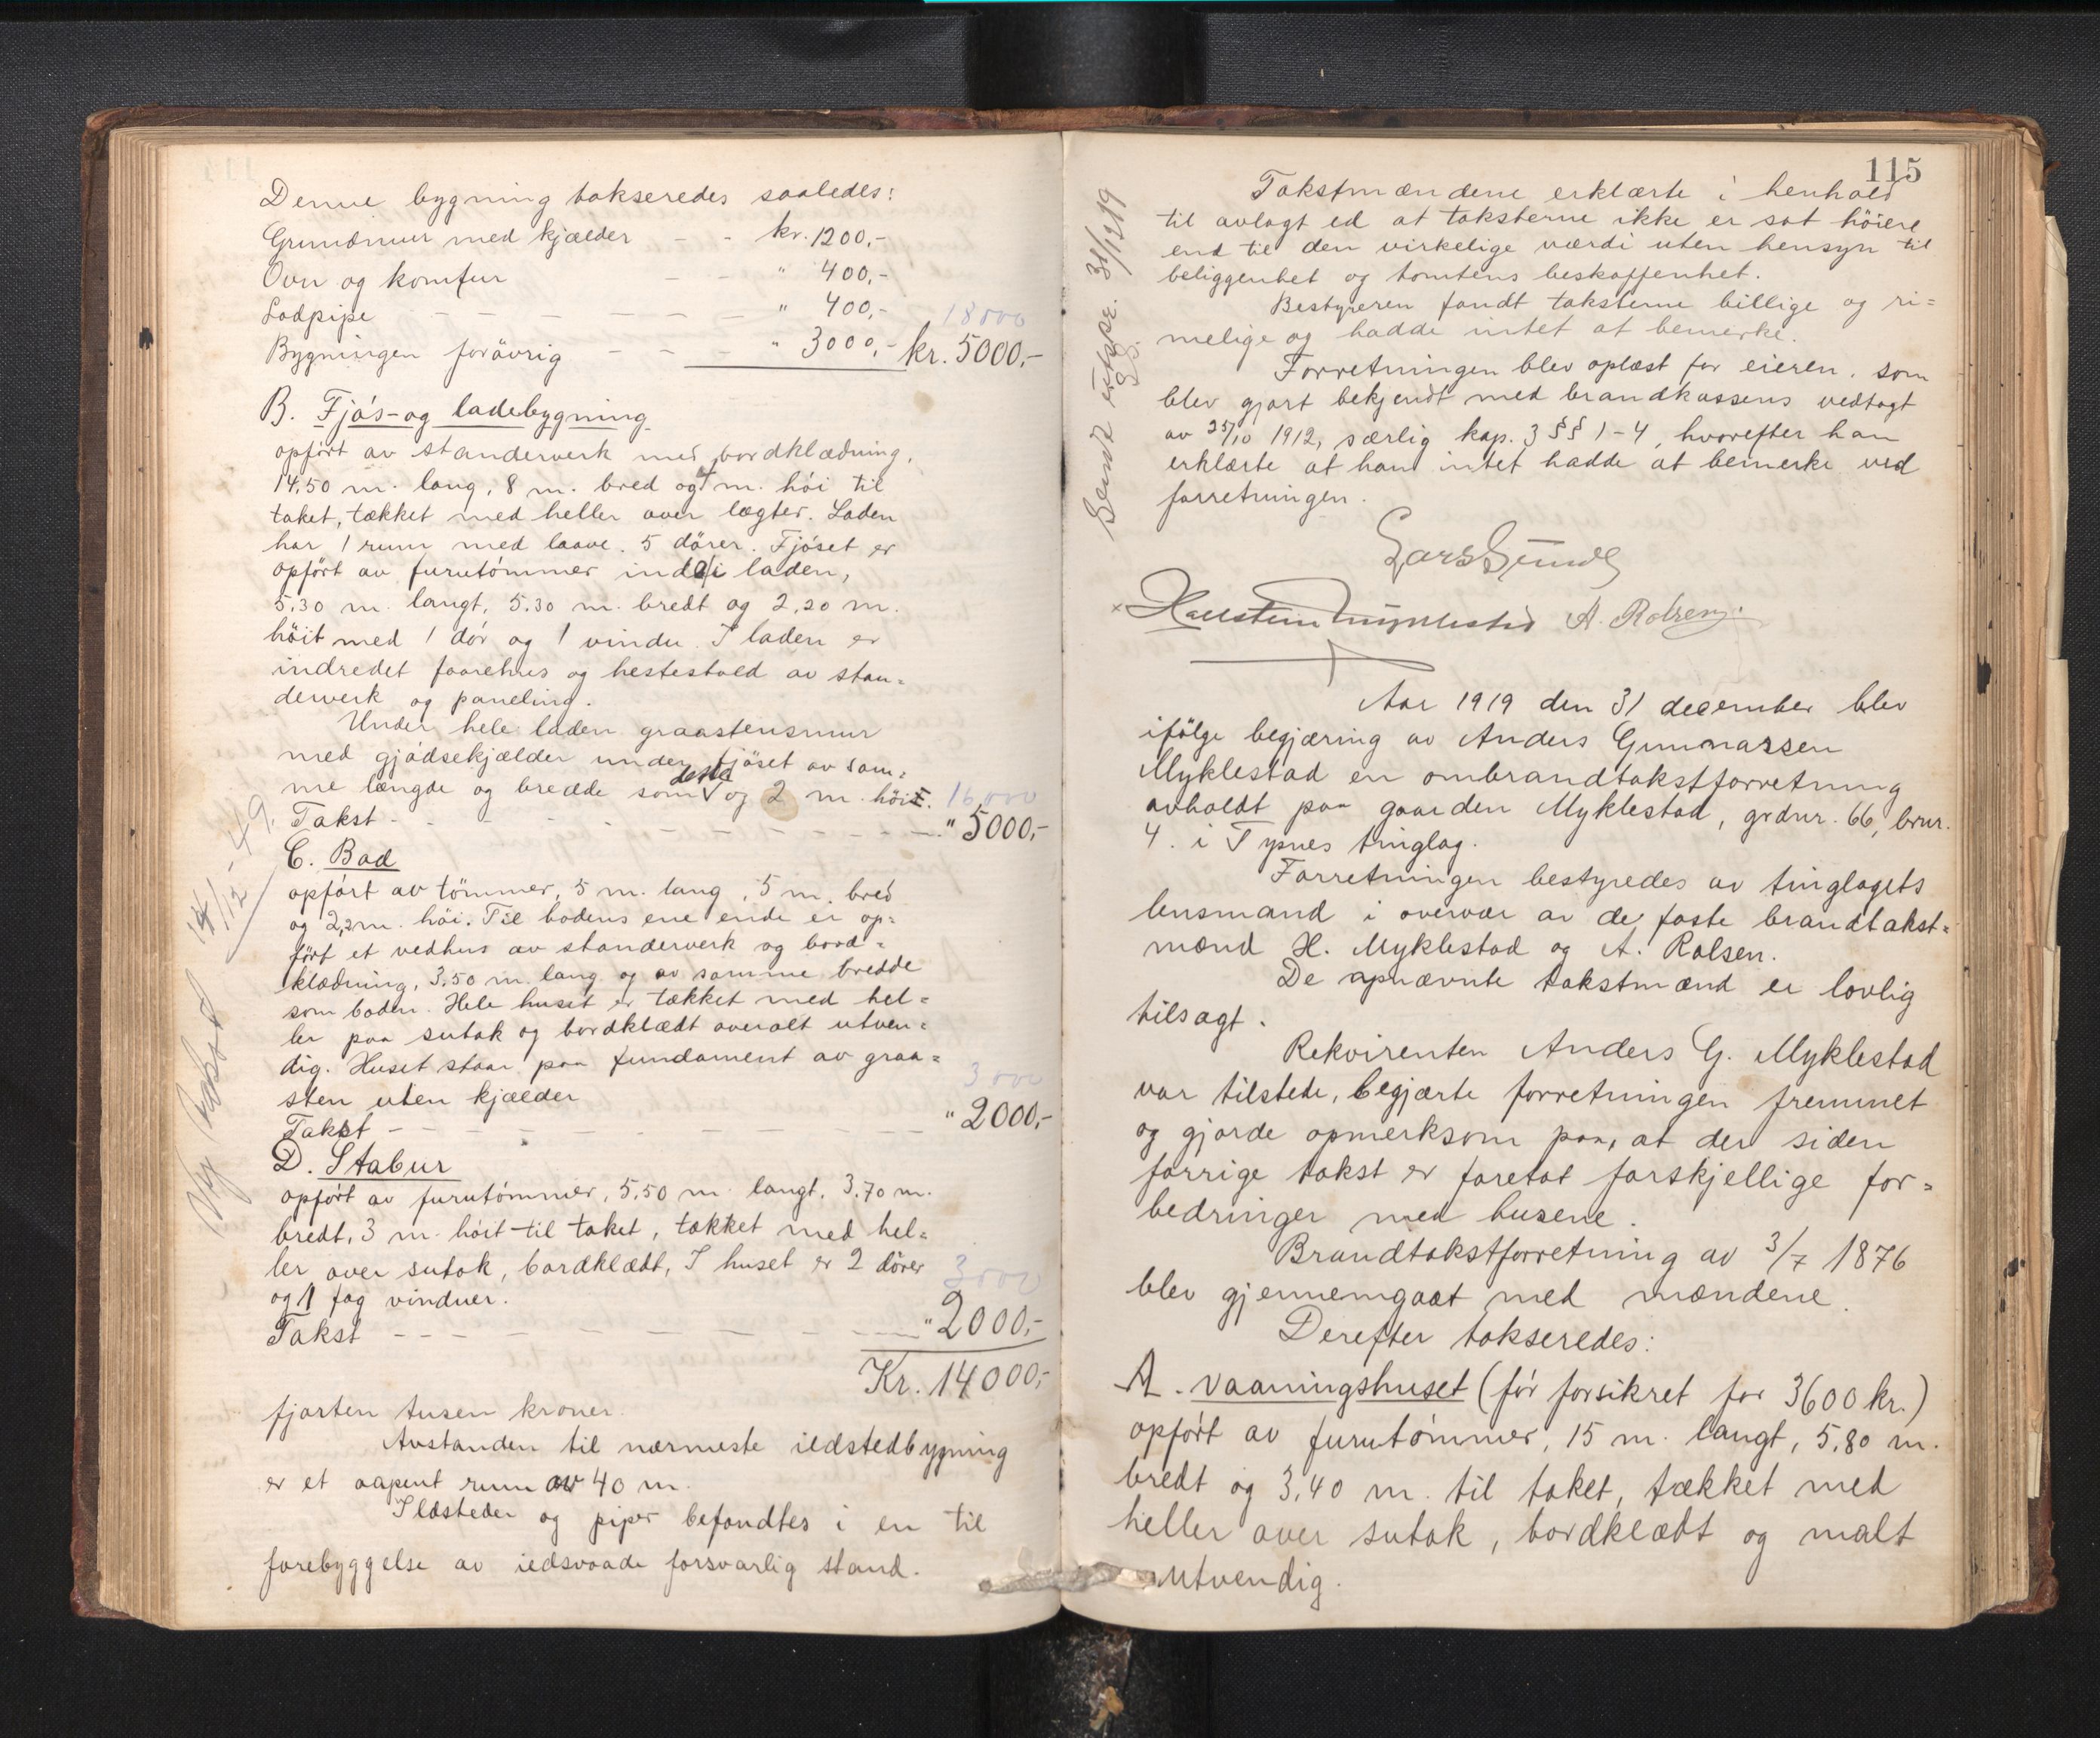 Denne bygning takseredes saaledes:
Grundmur med kjælder - - kr. 1200,-
Ovn og komfur - - " 400,-
Ladpipe - - - - - - " 400,-
18000
Bygningen forövrig - - - " 3000,- kr. 5000,-
B. Fjös- og ladebygning
opført av standerverk med bordklædning,
14,50 m. lang, 8 m. bred og 4 m. höi til
taket, tækket med heller over lægter. Laden
har 1 rum med laave. 5 dörer. Fjöset er
opfört av furutömmer inde i laden,
5.30 m. langt, 5.30 m. bredt og 2,20 m.
höit med 1 dör og 1 vindu. I laden er
indredet faarehus og hestestald av stan=
derverk og paneling.
Under hele laden graastensmur
med gjödselkjælder under fjöset av sam=
me længde og bredde som dette og 2 m. höi.
16000
Takst - - - - - - - - - - - " 5000,-
C. Bod
opfört av tömmer, 5 m. lang, 5 m. bred
og 2,2 m. höi. Til bodens ene ende er op=
fört et vedhus av standerverk og bord=
klædning, 3,50 m. lang og av samme bredde
som boden. Hele huset er tækket med hel=
ler paa sutak og bordklædt overalt utven=
dig. Huset staar paa fundament av graa=
sten uten kjælder
3000
Takst - - - - - - - - " 2000,-
D. Stabur
opfört av furutömmer, 5.50 m. langt, 3,70 m.
bredt, 3 m. höit til taket, tækket med hel=
ler over sutak, bordklædt, I huset er 2 dörer
3000
og 1 fag vinduer.
Takst - - - - - - - " 2000,-
Kr. 14000,-
fjorten tusen kroner.
Avstanden til nærmeste ildstedbygning
er et aapent rum av 40 m.
Ildsteder og piper befandtes i en til
forebyggelse av ildsvaade forsvarlig stand.
Ny takst 14/12-49.
115
Takstmændene erklærte i henhold
til avlagt ed at taksterne ikke er sat höiere
end til den virkelige værdi uten hensyn til
beliggenhet og tomtens beskaffenhet.
Bestyreren fandt taksterne billige og ri=
melige og hadde intet at bemerke.
Forretningen blev oplæst for eieren, som
blev gjort bekjendt med brandkassens vedtægt
av 25/10 1912, særlig kap. 3 §§ 1-4, hvorefter han
erklærte at han intet hadde at bemerke ved
forretningen.
Sendt 31/12 19
Lars Sunde
Hallstein Myklestad A. Rolsen
Aar 1919 den 31 december blev
ifölge begjæring av Anders Gunnarsen
Myklestad en ombrandtakstforretning
avholdt paa gaarden Myklestad, grdnr. 66, brnr.
4. i Tysnes tinglag.
Forretningen bestyredes av tinglagets
lensmand i overvær av de faste brandtakst=
mænd H. Myklestad og A. Rolsen.
De opnævnte takstmænd er lovlig
tilsagt.
Rekvirenten Anders G. Myklestad
var tilstede, begjærte forretningen fremmet
og gjorde opmerksom paa, at der siden
forrige takst er foretat forskjellige for=
bedringer med husene.
Brandtakstforretning av 3/7 1876
blev gjennemgaat med mændene.
Derefter takseredes:
A. vaaningshuset (för forsikret for 3600 kr.)
opfört av furutömmer, 15 m. langt, 5,80 m.
bredt og 3,40 m. til taket, tækket med
heller over sutak, bordklædt og malt
utvendig.